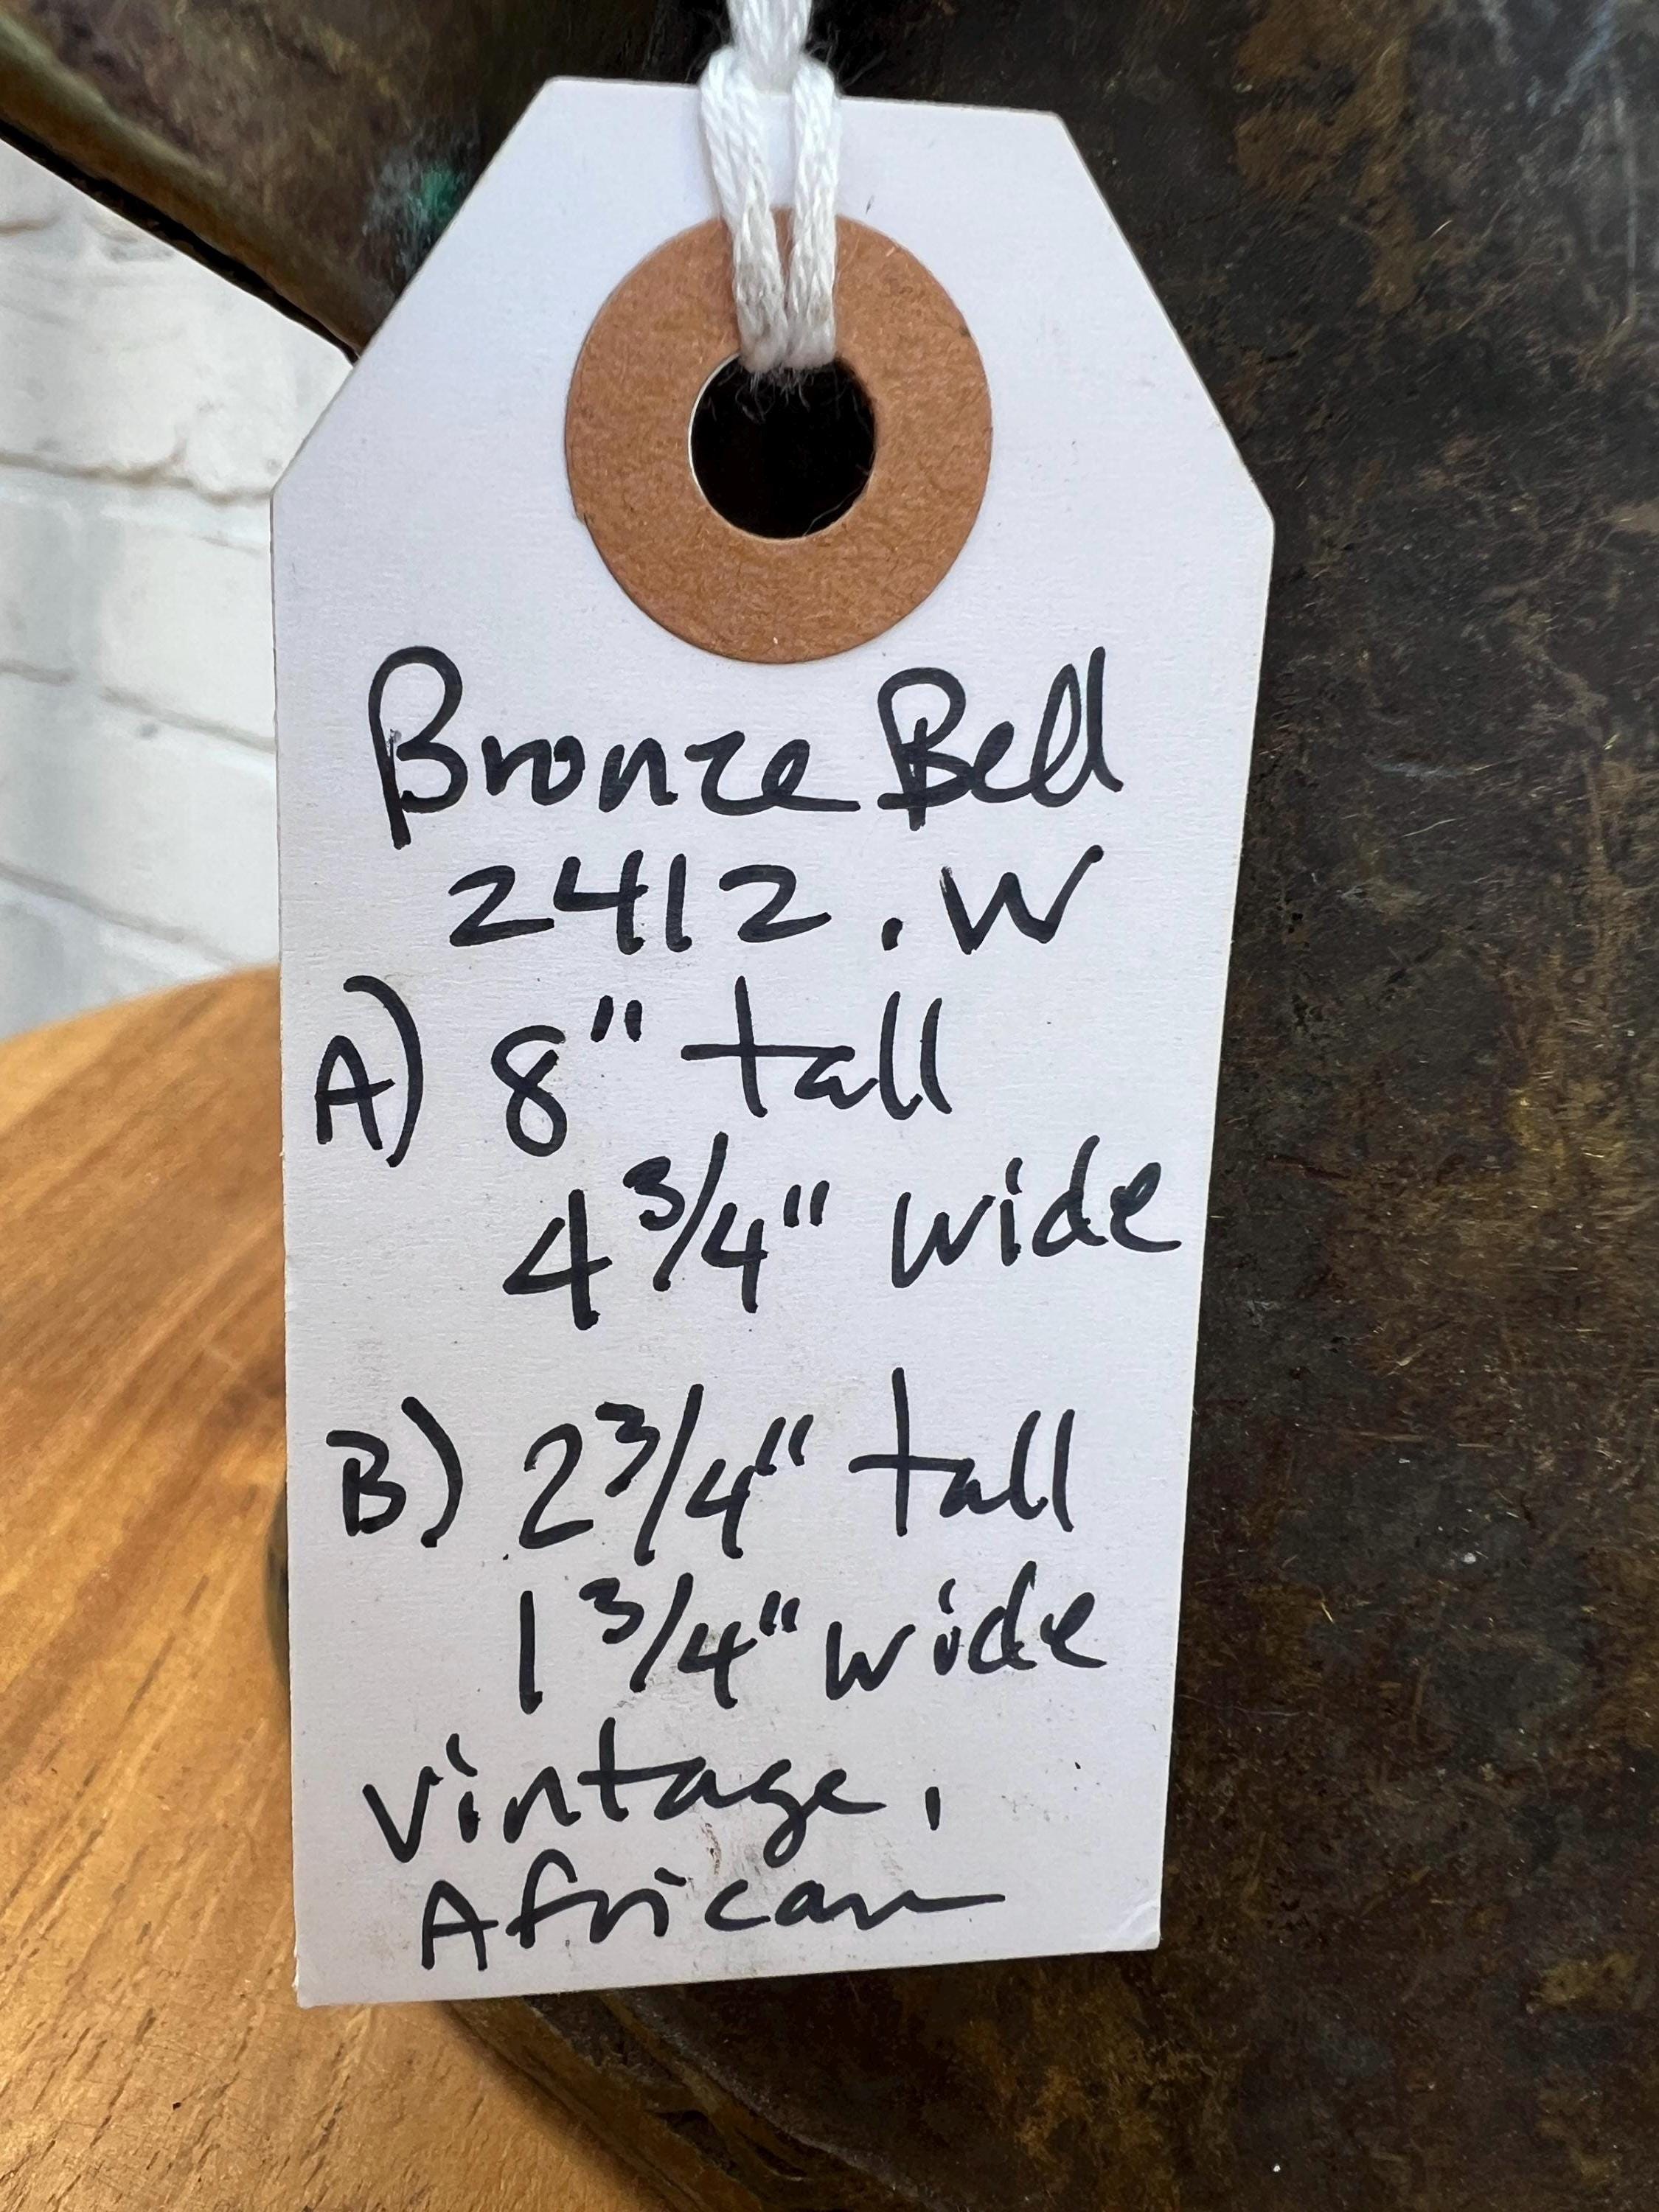 Bronze Bell
2412.W
A) 8" tall
4 3/4" wide
B) 2 3/4" tall
1 3/4" wide
Vintage,
African